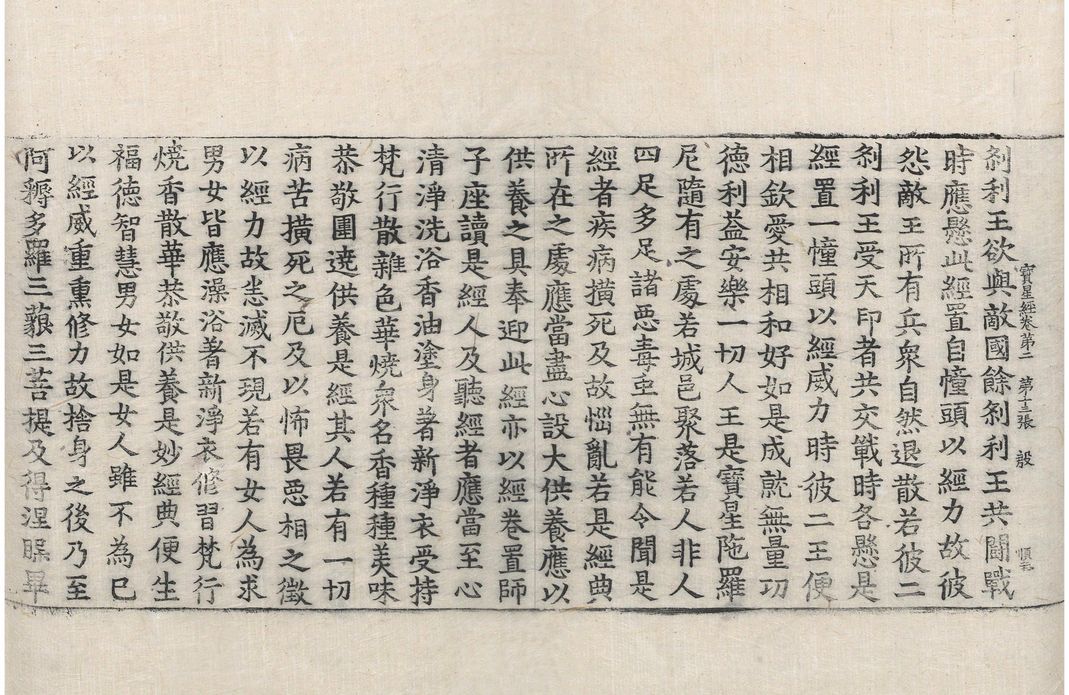 寶星經卷第二 第十三張 殷
刹利王欲與敵國餘刹利王共鬪戰
時應懸此經置自幢頭以經力故彼
怨敵王所有兵衆自然退散若彼二
刹利王受天印者共交戰時各懸是
經置一幢頭以經威力時彼二王便
相欽愛共相和好如是成就無量功
德利益安樂一切人王是寶星陁羅
尼隨有之處若城邑聚落若人非人
四足多足諸悪毒虫無有能令聞是
經者疾病橫死及故惱亂若是經典
所在之處應當盡心設大供養應以
供養之具奉迎此經亦以經卷置師
子座讀是經人及聽經者應當至心
清淨洗浴香油塗身著新淨衣受持
梵行散雜色華燒衆名香種種美味
恭敬圍遶供養是經其人若有一切
病苦橫死之厄及以怖畏悪相之徵
以經力故悉滅不現若有女人為求
男女皆應澡浴著新淨衣修習梵行
燒香散華恭敬供養是妙經典便生
福德智慧男女如是女人雖不為已
以經威重熏修力故捨身之後乃至
阿耨多羅三藐三菩提及得涅槃畢